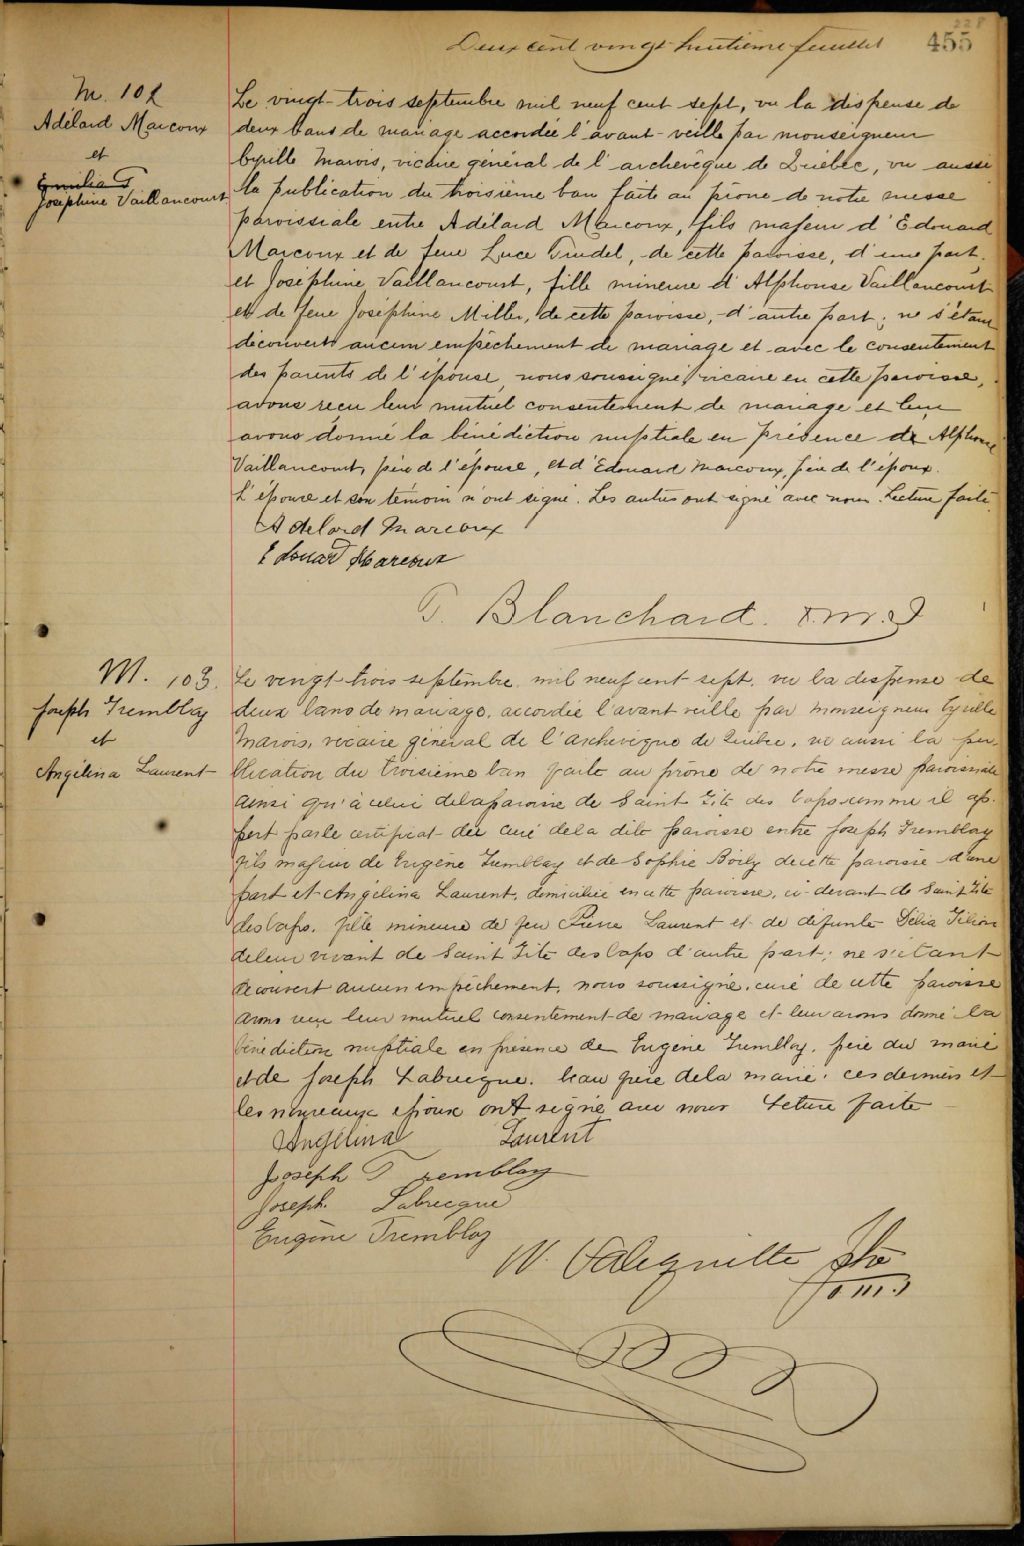 228
Deux cent vingt-huitième feuillet 455
M. 102
Adélard Marcoux
et
Emilia
Joséphine Vaillancourt
Le vingt-trois septembre mil neuf cent sept, vu la dispense de
deux bans de mariage accordée l'avant-veille par monseigneur
Cyrille Marois, vicaire général de l'archevêque de Québec, vu aussi
la publication du troisième ban faite au prône de notre messe
paroissiale entre Adélard Marcoux, fils majeur d'Edouard
Marcoux et de feue Luce Trudel, de cette paroisse, d'une part,
et Joséphine Vaillancourt, fille mineure d'Alphonse Vaillancourt
et de feue Joséphine Miller, de cette paroisse, d'autre part; ne s'étant
découvert aucun empêchement de mariage et avec le consentement
des parents de l'épouse, nous soussigné, vicaire en cette paroisse,
avons reçu leur mutuel consentement de mariage et leur
avons donné la bénédiction nuptiale en présence de Alphonse
Vaillancourt, père de l'épouse, et d'Edouard Marcoux, père de l'époux.
L'épouse et son témoin n'ont signé. Les autres ont signé avec nous. Lecture faite.
Adelard Marcoux
Edouard Marcoux
T. Blanchard. o.m.I
M. 103.
Joseph Tremblay
et
Angélina Laurent
Le vingt-trois septembre mil neuf cent sept, vu la dispense de
deux bans de mariage, accordée l'avant veille par monseigneur Cyrille
Marois, vicaire général de l'archevêque de Québec, vu aussi la pu-
blication du troisième ban faite au prône de notre messe paroissiale
ainsi qu'à celui de la paroisse de Saint Tite des Caps comme il ap-
pert par le certificat du curé de la dite paroisse entre Joseph Tremblay
fils majeur de Eugène Tremblay et de Sophie Boily de cette paroisse d'une
part et Angélina Laurent, domiciliée en cette paroisse, ci-devant de Saint Tite
des Caps, fille mineure de feu Pierre Laurent et de défunte Délia Filion
de leur vivant de Saint Tite des Caps d'autre part; ne s'étant
découvert aucun empêchement, nous soussigné, curé de cette paroisse
avons reçu leur mutuel consentement de mariage et leur avons donné la
bénédiction nuptiale en présence de Eugène Tremblay, père du marié
et de Joseph Labrecque, beau frère de la mariée; ces derniers et
les nouveaux époux ont signé avec nous Lecture faite
Angélina Laurent
Joseph Tremblay
Joseph Labrecque
Eugène Tremblay
W. Valiquette Ptre
o.m.I